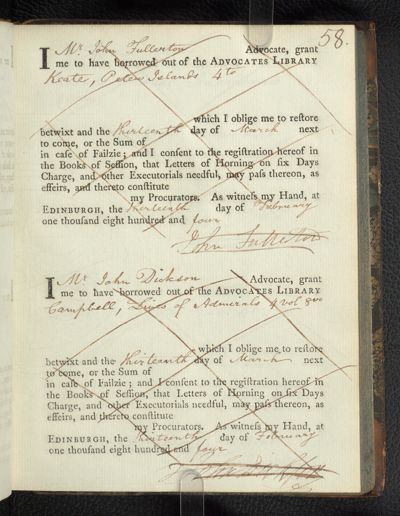 58.
I Mr. John Fullerton Advocate, grant
me to have borrowed out of the ADVOCATES LIBRARY
Keate, Pelew Islands 4to
which I oblige me to restore
betwixt and the thirteenth day of March next
to come, or the Sum of
in case of Failzie; and I consent to the registration hereof in
the Books of Session, that Letters of Horning on six Days
Charge, and other Executorials needful, may pass thereon, as
effeirs, and thereto constitute
my Procurators. As witness my Hand, at
EDINBURGH, the thirteenth day of February
one thousand eight hundred and four
John Fullerton
I Mr. John Dickson Advocate, grant
me to have borrowed out of the ADVOCATES LIBRARY
Campbell, Lives of Admirals 4 vol 8vo
which I oblige me to restore
betwixt and the thirteenth day of March next
to come, or the Sum of
in case of Failzie; and I consent to the registration hereof in
the Books of Session, that Letters of Horning on six Days
Charge, and other Executorials needful, may pass thereon, as
effeirs, and thereto constitute
my Procurators. As witness my Hand, at
EDINBURGH, the thirteenth day of February
one thousand eight hundred and four